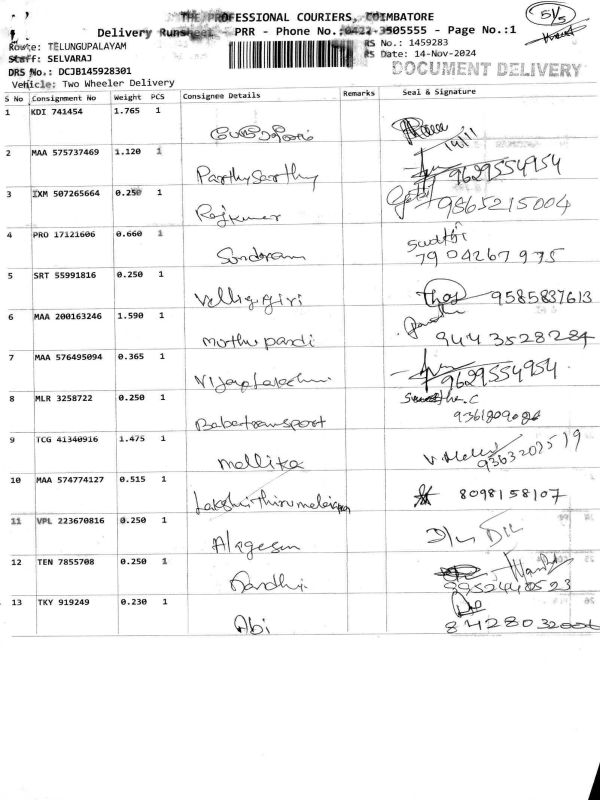 THE PROFESSIONAL COURIERS, COIMBATORE
Delivery Runsheet PRR - Phone No.:0422-3505555 - Page No.:1
51/5
Route: TELUNGUPALAYAM
RS No.: 1459283
Staff: SELVARAJ
RS Date: 14-Nov-2024
DRS No.: DCJB145928301
DOCUMENT DELIVERY
Vehicle: Two Wheeler Delivery
S No Consignment No Weight PCS Consignee Details Remarks Seal & Signature
1 KDI 741454 1.765 1 14/11
2 MAA 575737469 1.120 1 Parthysarthy 9629554954
3 IXM 507265664 0.250 1 Rajkumar 9865215004
4 PRO 17121606 0.660 1 Sondaram 7904267975
5 SRT 55991816 0.250 1 Velligigiri 9585837613
6 MAA 200163246 1.590 1 morthu pandi 9443528284
7 MAA 576495094 0.365 1 Vijayalakshmi 9629554954
8 MLR 3258722 0.250 1 Babatransport
9 TCG 41340916 1.475 1 mallika
10 MAA 574774127 0.515 1 8098158107
11 VPL 223670816 0.250 1 Alagesan
12 TEN 7855708 0.250 1 9952440523
13 TKY 919249 0.230 1 Abi